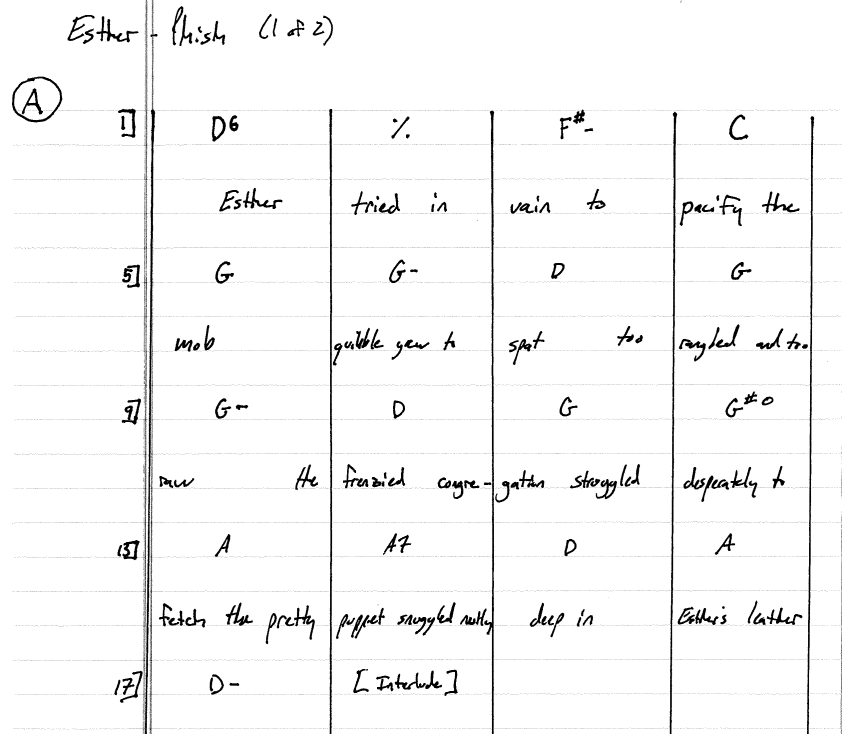 Esther - Phish (1 of 2)
A
1] D6 % F#- C
Esther tried in vain to pacify the
5] G G- D G
mob quibble grew to spat too and too
9] G- D G G#o
raw the frenzied congre-gation struggled desperately to
13] A A7 D A
fetch the pretty puppet snuggled neatly deep in Esther's leather
17] D- [Interlude]